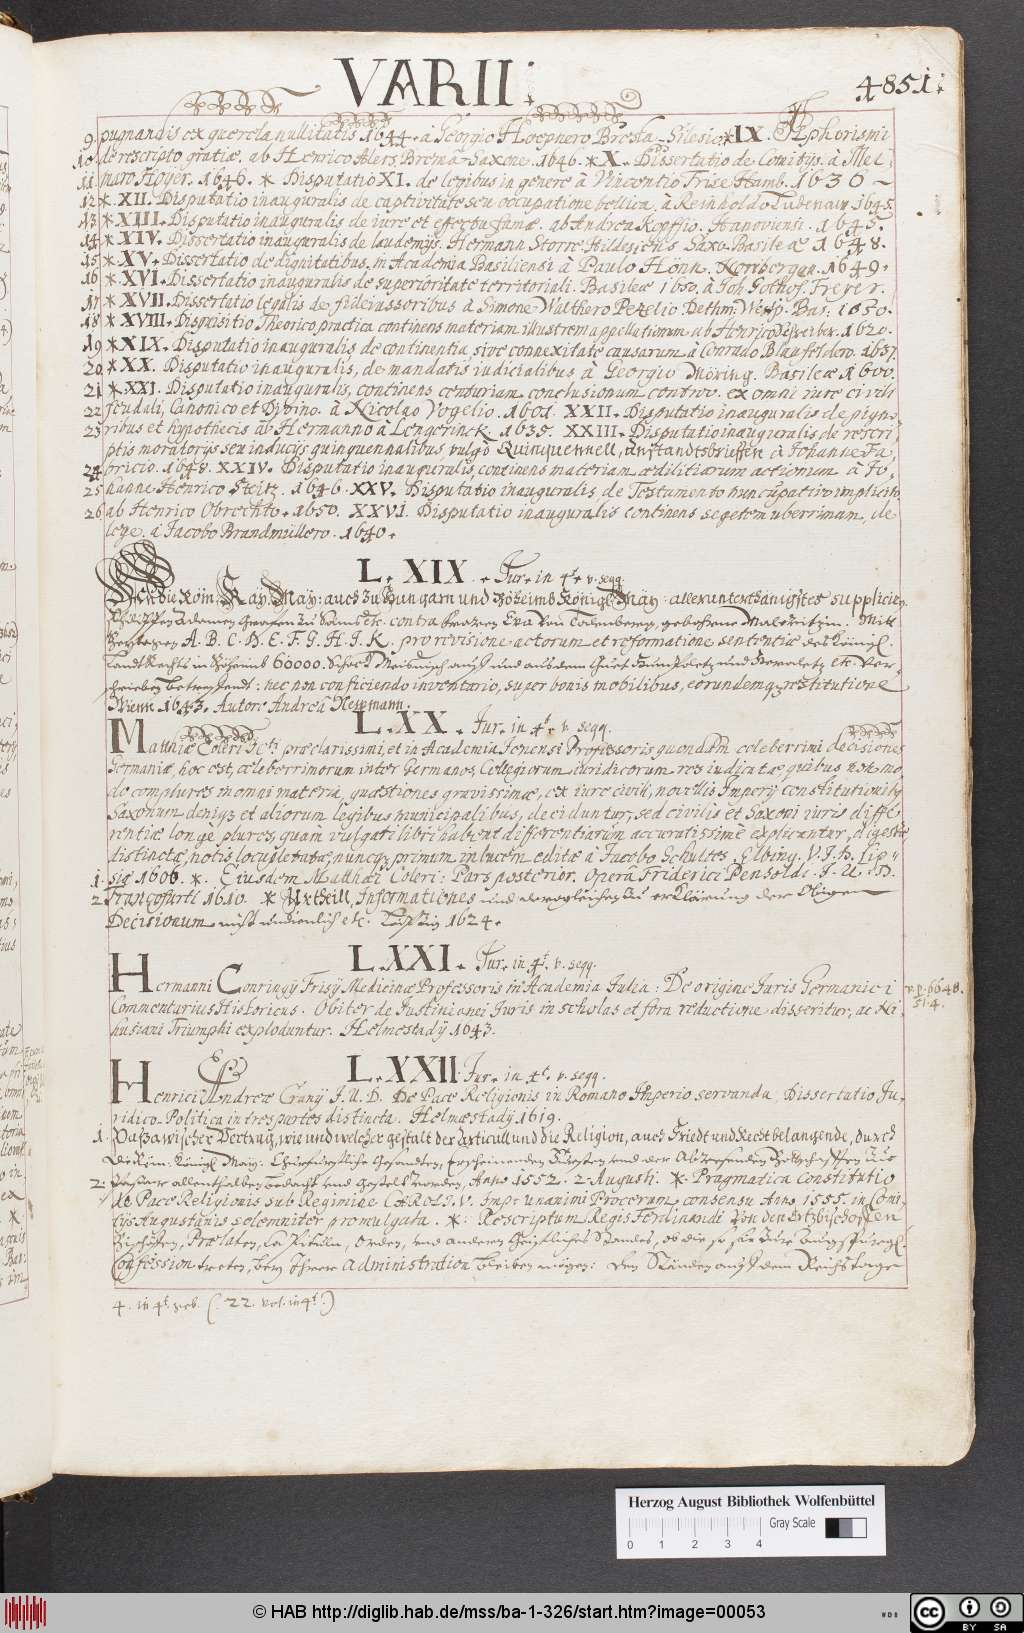 VARII:
4851:
9 pugnandis ex querela nullitatis 1644. à Georgio Hoepnero Bresla-Silesio * IX. Aphorismi
10 de rescripto gratiæ, ab Henrico Alers Brema-Saxone. 1646. * X. Dissertatio de Comitijs. à Mel-
11 Hoyer. 1646. * Disputatio XI. de legibus in genere à Vincentio Frise Hamb. 1636
12 *. XII. Disputatio inauguralis de captivitate seu occupatione bellica. à Reinholdo 1645.
13 * XIII. Disputatio inauguralis de iure et effectu famæ. ab Andrea Kopffio. Hanoviensi. 1645.
14 * XIV. Dissertatio inauguralis de laudemijs. Hermann Storre Hildesiens Saxo. Basileæ 1648.
15 * XV. Dissertatio de dignitatibus in Academia Basiliensi à Paulo Hönn. 1649.
16 * XVI. Dissertatio inauguralis de superioritate territoriali. Basileæ 1650. à Joh. Gothof. Freyer.
17 * XVII. Dissertatio legalis de fideiussoribus à Simone Walthero Pezelio Dethm. Westp. Bas: 1650.
18 * XVIII. Disquisitio Theorico practica continens materiam illustrem appellationum ab Henrico 1620.
19 * XIX. Disputatio inauguralis de continentia, sive connexitate causarum à Conrado Blaufeldero. 1637.
20 * XX. Disputatio inauguralis, de mandatis iudicialibus à Georgio Möring. Basileæ 1600.
21 * XXI. Disputatio inauguralis, continens centuriam conclusionum controv. ex omni iure civili
22 feudali, Canonico et Divino. à Nicolao Vogelio. 1601. XXII. Disputatio inauguralis de pigno-
23 ribus et hypothecis ab Hermanno à Lengerinck. 1635. XXIII. Disputatio inauguralis de rescri-
ptis moratorijs seu inducijs quinquennalibus, vulgò Quinquennell, Anstandtsbrieffen à Johanne Fa-
24 bricio. 1648. XXIV. Disputatio inauguralis, continens materiam ædilitiarum actionum à Jo-
25 hanne Henrico Steitz. 1646. XXV. Disputatio inauguralis de Testamento nuncupativo implicito,
26 ab Henrico Obrechto. 1650. XXVI. Disputatio inauguralis continens segetem uberrimam, de
lege. à Jacobo Brandmüllero. 1640.
L. XIX. Jur. in 4t. v. seqq.
An die Röm. Kay. May: auch zu Hungarn und Böheimb Königl. May: allerunterthänigstes supplicien
contra Frawen Eva von gebohrne Mit
Beylagen A. B. C. D. E. F. G. H. I. K. pro revisione actorum et reformatione sententiæ des Königl.
Landt Rechts in Böheimb 60000. Schock Meisnisch auff und aus dem Guet und etc. ver-
schrieben betreffendt: nec non conficiendo inventario, super bonis mobilibus, eorundemq restitutione
Wienn 1643. Autore Andrea
L. XX. Jur. in 4t. v. seqq.
Matthiæ Coleri Jcti præclarissimi, et in Academia Jenensi Professoris quondam celeberrimi decisiones
Germaniæ, hoc est, celeberrimorum inter Germanos, Collegiorum iuridicorum res iudicatæ, quibus non mo-
do complures in omni materia, quæstiones gravissimæ, ex iure civili, novellis Imperij constitutionib
Saxonum deniq et aliorum legibus municipalibus, deciduntur, sed civilis et Saxoni iuris diffe-
rentiæ longè plures, quam vulgati libri habent differentiarum accuratissimè explicantur, digestæ
distinctæ, notis locupletatæ, nuncq primum in lucem editæ à Jacobo Schultes. Elbing. V.J.D. Lip-
1. siæ 1606. *. Eiusdem Matthæi Coleri: Pars posterior. Opera Friderici Pensoldi. J. U. D.
2. Francofurti 1610. * Urtheill, Informationes und dergleichen zu erklärung der Obigen
Decisionum nicht undienlich etc. Leipzig 1624.
L. XXI. Jur. in 4t. v. seqq.
Hermanni Conringij Frisij Medicinæ Professoris in Academia Julia: De origine Juris Germanici
Commentarius Historicus. Obiter de Justinianei Juris in scholas et fora reductione disseritur, ac Ni-
husiani Triumphi exploduntur. Helmestadij. 1643.
v.p. 6648.
51.4.
L. XXII. Jur. in 4t. v. seqq.
Henrici Andreæ Cranij J.U.D. De Pace Religionis in Romano Imperio servanda, Dissertatio Ju-
ridico-Politica in tres partes distincta. Helmæstadij 1619.
1. Passawischer Vertrag, wie und welcher gestalt der Articull und die Religion, auch Friedt und Recht belangende, durch
die Röm. Königl. May: Churfürstliche Gesandten, Erscheinenden Fürsten und der Abwesenden Bottschafften zue
2. Passaw allenthalben bedacht und gestelt worden, Anno 1552. 2 Augusti. *. Pragmatica Constitutio
de Pace Religionis sub Regimine CAROLI. V. Imp: unanimi Procerum consensu Anno 1555. in Comi-
tijs Augustanis solemniter promulgata. *: Rescriptum Regis Ferdinandi von den Ertzbischoffen
Bischöffen, Prælaten, Orden, und anderen Geistliches Standes, ob die so sich zur Augspurgl.
Confession treten, bey Ihrer Administration bleiben mögen: den Ständen auff dem Reichstage
4. in 4t. geb. (. 22. vol. in 4t.)
Herzog August Bibliothek Wolfenbüttel
Gray Scale
0 1 2 3 4
© HAB http://diglib.hab.de/mss/ba-1-326/start.htm?image=00053
WDB
cc BY SA